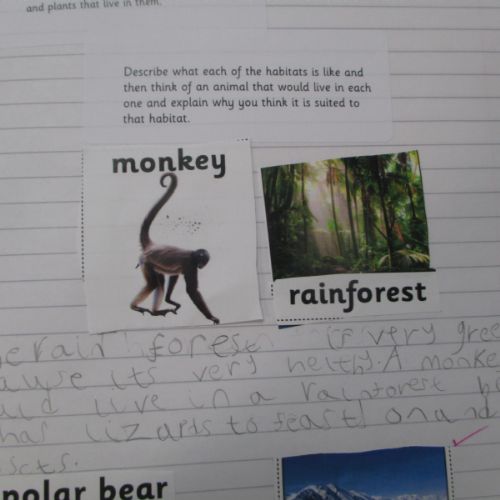 and plants that live in them.
Describe what each of the habitats is like and
then think of an animal that would live in each
one and explain why you think it is suited to
that habitat.
monkey
rainforest
erain forest is very gree
ause its very helthy. A monke
live in a rainforest
has lizards to feast on and
polar bear